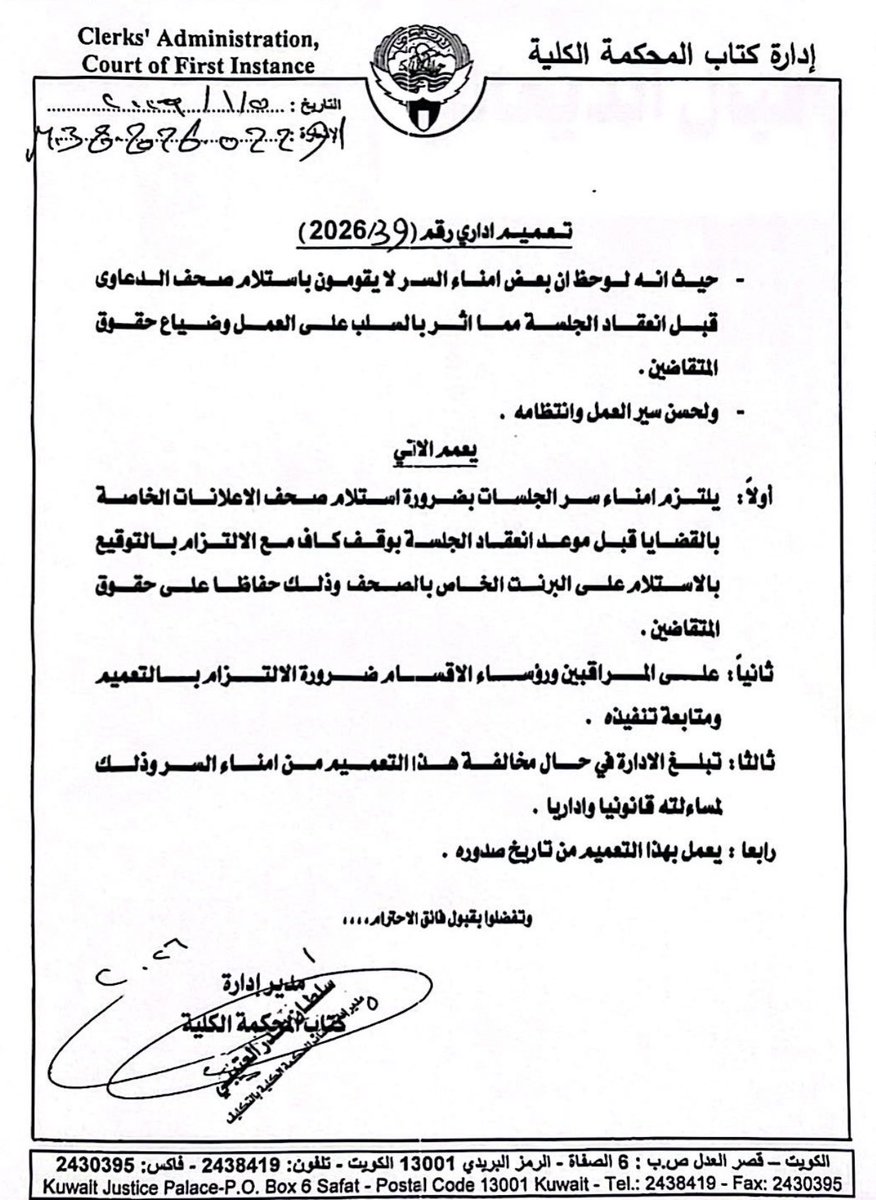 Clerks' Administration,
Court of First Instance
إدارة كتاب المحكمة الكلية
التاريخ :
تعميم اداري رقم (2026/39)
- حيث انه لوحظ ان بعض امناء السر لا يقومون باستلام صحف الدعاوى
قبل انعقاد الجلسة مما اثر بالسلب على العمل وضياع حقوق
المتقاضين .
- ولحسن سير العمل وانتظامه .
يعمم الاتي
أولاً: يلتزم امناء سر الجلسات بضرورة استلام صحف الاعلانات الخاصة
بالقضايا قبل موعد انعقاد الجلسة بوقف كاف مع الالتزام بالتوقيع
بالاستلام على البرنت الخاص بالصحف وذلك حفاظا على حقوق
المتقاضين .
ثانياً: على المراقبين ورؤساء الاقسام ضرورة الالتزام بالتعميم
ومتابعة تنفيذه .
ثالثا: تبلغ الادارة في حال مخالفة هذا التعميم من امناء السر وذلك
لمساءلته قانونيا واداريا .
رابعا : يعمل بهذا التعميم من تاريخ صدوره .
وتفضلوا بقبول فائق الاحترام،،،،
مدير إدارة
كتاب المحكمة الكلية
الكويت – قصر العدل ص.ب : 6 الصفاة - الرمز البريدي 13001 الكويت - تلفون: 2438419 - فاكس: 2430395
Kuwait Justice Palace-P.O. Box 6 Safat - Postal Code 13001 Kuwait - Tel.: 2438419 - Fax: 2430395